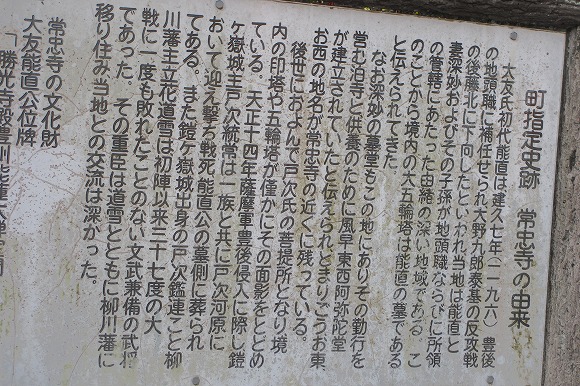 町指定史跡 常忠寺の由来
大友氏初代能直は建久七年(一一九六)豊後
の地頭職に補任せられ大野九郎泰基の反攻戦
の後藤北に下向したといわれ当地は能直と
妻深妙およびその子孫が地頭職ならびに所領
の管轄にあたった由緒の深い地域である こ
のことから境内の大五輪塔は能直の墓である
と伝えられてきた。
なお深妙の墓堂もこの地にありその勤行を
営む泊寺と供養のために風早東西阿弥陀堂
が建立されていたと伝えられどまりごうお東、
お西の地名が常忠寺の近くに残っている。
後世におよんで戸次氏の菩提所となり境
内の印塔や五輪塔が僅かにその面影をとどめ
ている。天正十四年薩摩軍豊後侵入に際し鎧
ヶ嶽城主戸次統常は一族と共に戸次河原に
おいて迎え撃ち戦死能直公の墓側に葬られ
てある。また鎧ヶ嶽城出身の戸次鑑連こと柳
川藩主立花道雪は初陣以来三十七度の大
戦に一度も敗れたことのない文武兼備の武将
であった。その重臣は道雪とともに柳川藩に
移り住み当地との交流は深かった。
常忠寺の文化財
大友能直公位牌
「勝光寺殿豊州能蓮大禅定門